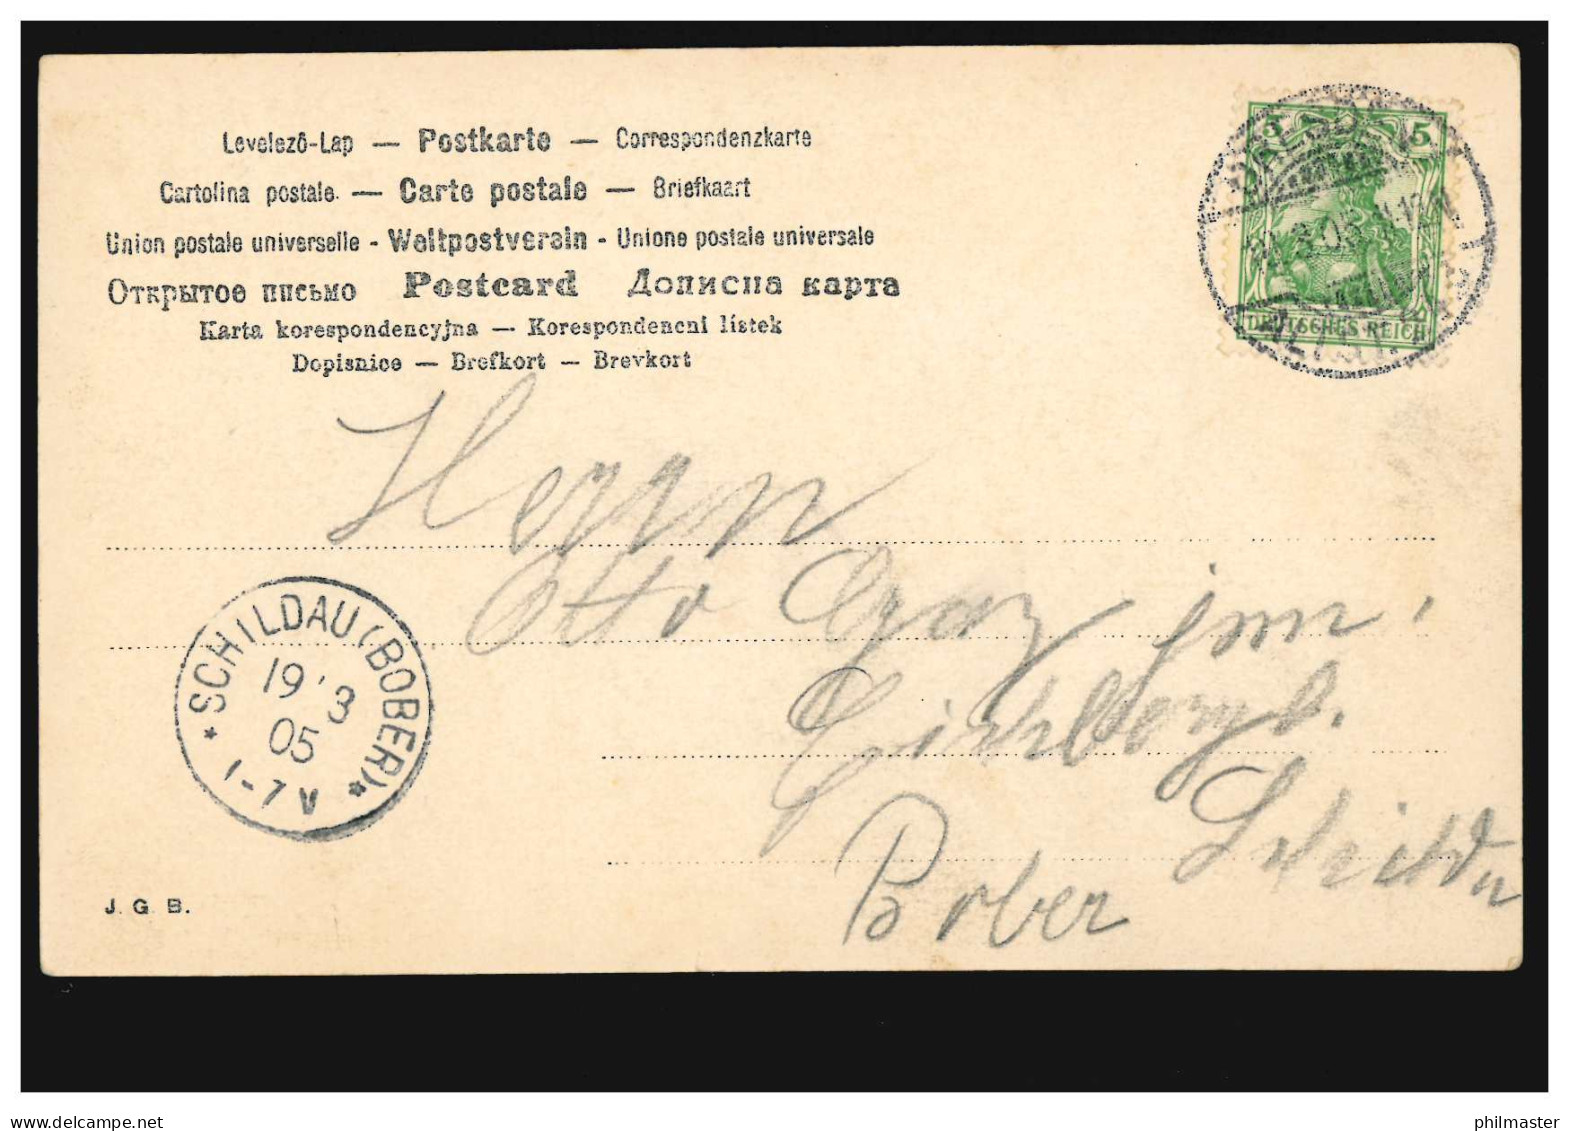 Levelező-Lap — Postkarte — Correspondenzkarte
Cartolina postale. — Carte postale — Briefkaart
Union postale universelle - Weltpostverein - Unione postale universale
Открытое письмо Postcard Дописна карта
Karta korespondencyjna — Korespondencni lístek
Dopisnice — Brefkort — Brevkort
5 5
DEUTSCHES REICH
Herrn
Otto
SCHILDAU (BOBER)
19 3
05
1-7 V
Bober
J. G. B.
delcampe.net
philmaster